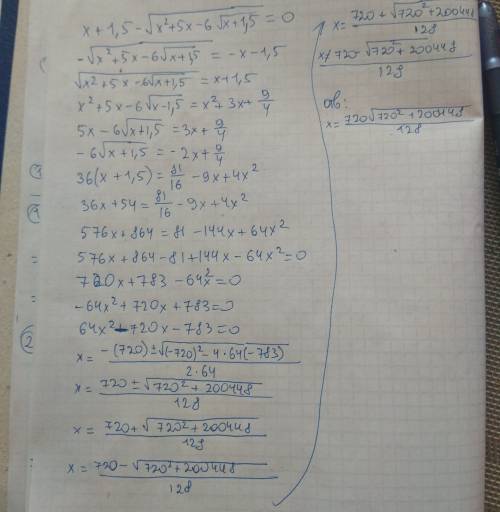 x + 1,5 - √(x² + 5x - 6√(x + 1,5)) = 0
-√(x² + 5x - 6√(x + 1,5)) = -x - 1,5
√(x² + 5x - 6√(x + 1,5)) = x + 1,5
x² + 5x - 6√(x - 1,5) = x² + 3x + 9/4
5x - 6√(x + 1,5) = 3x + 9/4
-6√(x + 1,5) = -2x + 9/4
36(x + 1,5) = 81/16 - 9x + 4x²
36x + 54 = 81/16 - 9x + 4x²
576x + 864 = 81 - 144x + 64x²
576x + 864 - 81 + 144x - 64x² = 0
720x + 783 - 64x² = 0
-64x² + 720x + 783 = 0
64x² - 720x - 783 = 0
x = (-(720) ± √((-720)² - 4·64(-783)))/(2·64)
x = (720 ± √(720² + 200448))/128
x = (720 + √(720² + 200448))/128
x = (720 - √(720² + 200448))/128
x = (720 + √(720² + 200448))/128
x ≠ (720 - √(720² + 200448))/128
x = (720√(720² + 200448))/128